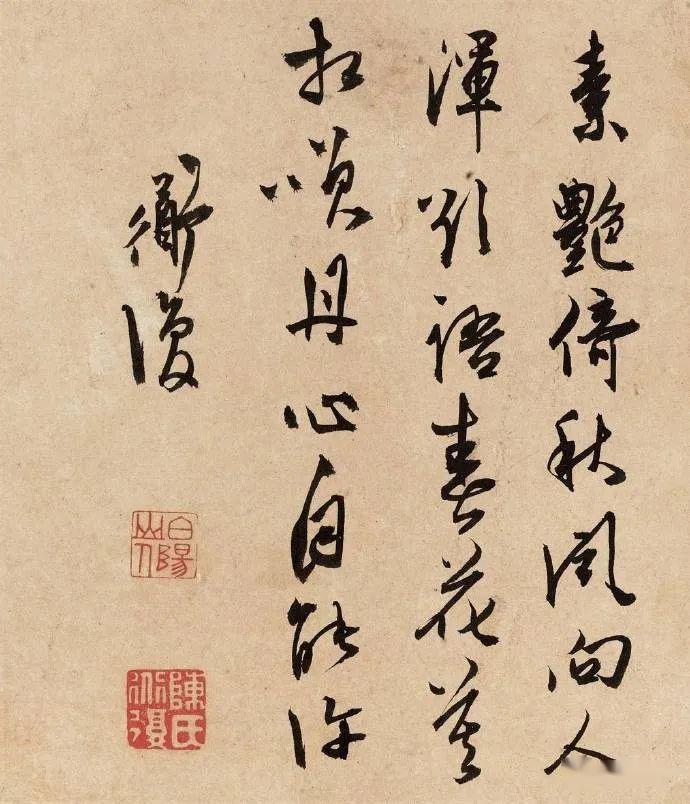 素艷倚秋風向人
渾欲語春花莫
相嗔丹心自能許
衜復
白陽山人
陳氏道復